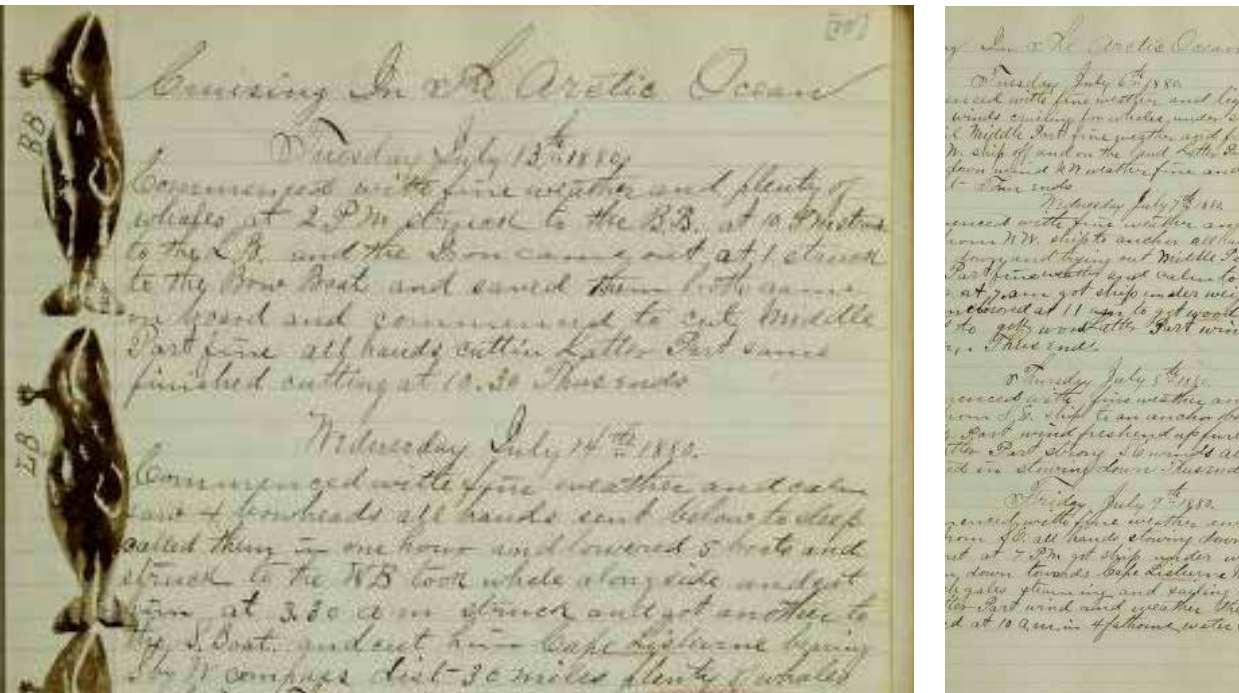 Cruising In The Arctic Ocean
BB
Tuesday July 13th 1880
Commenced with fine weather and plenty of
whales at 2 PM struck to the B.B. at 10 PM struck
to the L B. and the Iron came out at 1 struck
to the Bow Boat and saved them both came
on board and commenced to cut, Middle
Part fine all hands cuttin Latter Part same
finished cutting at 10.30 Thus ends
LB
Wednesday July 14th 1880.
Commenced with fine weather and calm
saw 4 bowheads all hands sent below to sleep
called them in one hour and lowered 5 boats and
struck to the WB took whale alongside and cut
him at 3.30 am struck and got another to
the S. Boat. and cut him Cape Lisburne bearing
S by W compass dist-30 miles plenty of whales
In The Arctic Ocean
Tuesday July 6th 1880
enced with fine weather and
winds cruising for whales, under
Middle Part fine weather and
W. ship off and on the land Latter
down wind NW weather fine and
Thus ends
Wednesday July 7th 1880.
enced with fine weather and
from NW. ship to anchor all
and trying out Middle
Part fine weather and calm
at 7 am got ship under
anchored at 11 am to get wood
to get wood Latter Part
Thus ends
Thursday July 8th 1880.
enced with fine weather
from S.E. ship to an anchor
Part wind freshend up
Part strong SE winds
in stowing down Thus ends
Friday July 9th 1880.
enced with fine weather
from SE all hands stowing down
at 7 PM got ship under
down towards Cape Lisburne
gales steaming and
Part wind and weather
at 10 am in 4 fathoms water